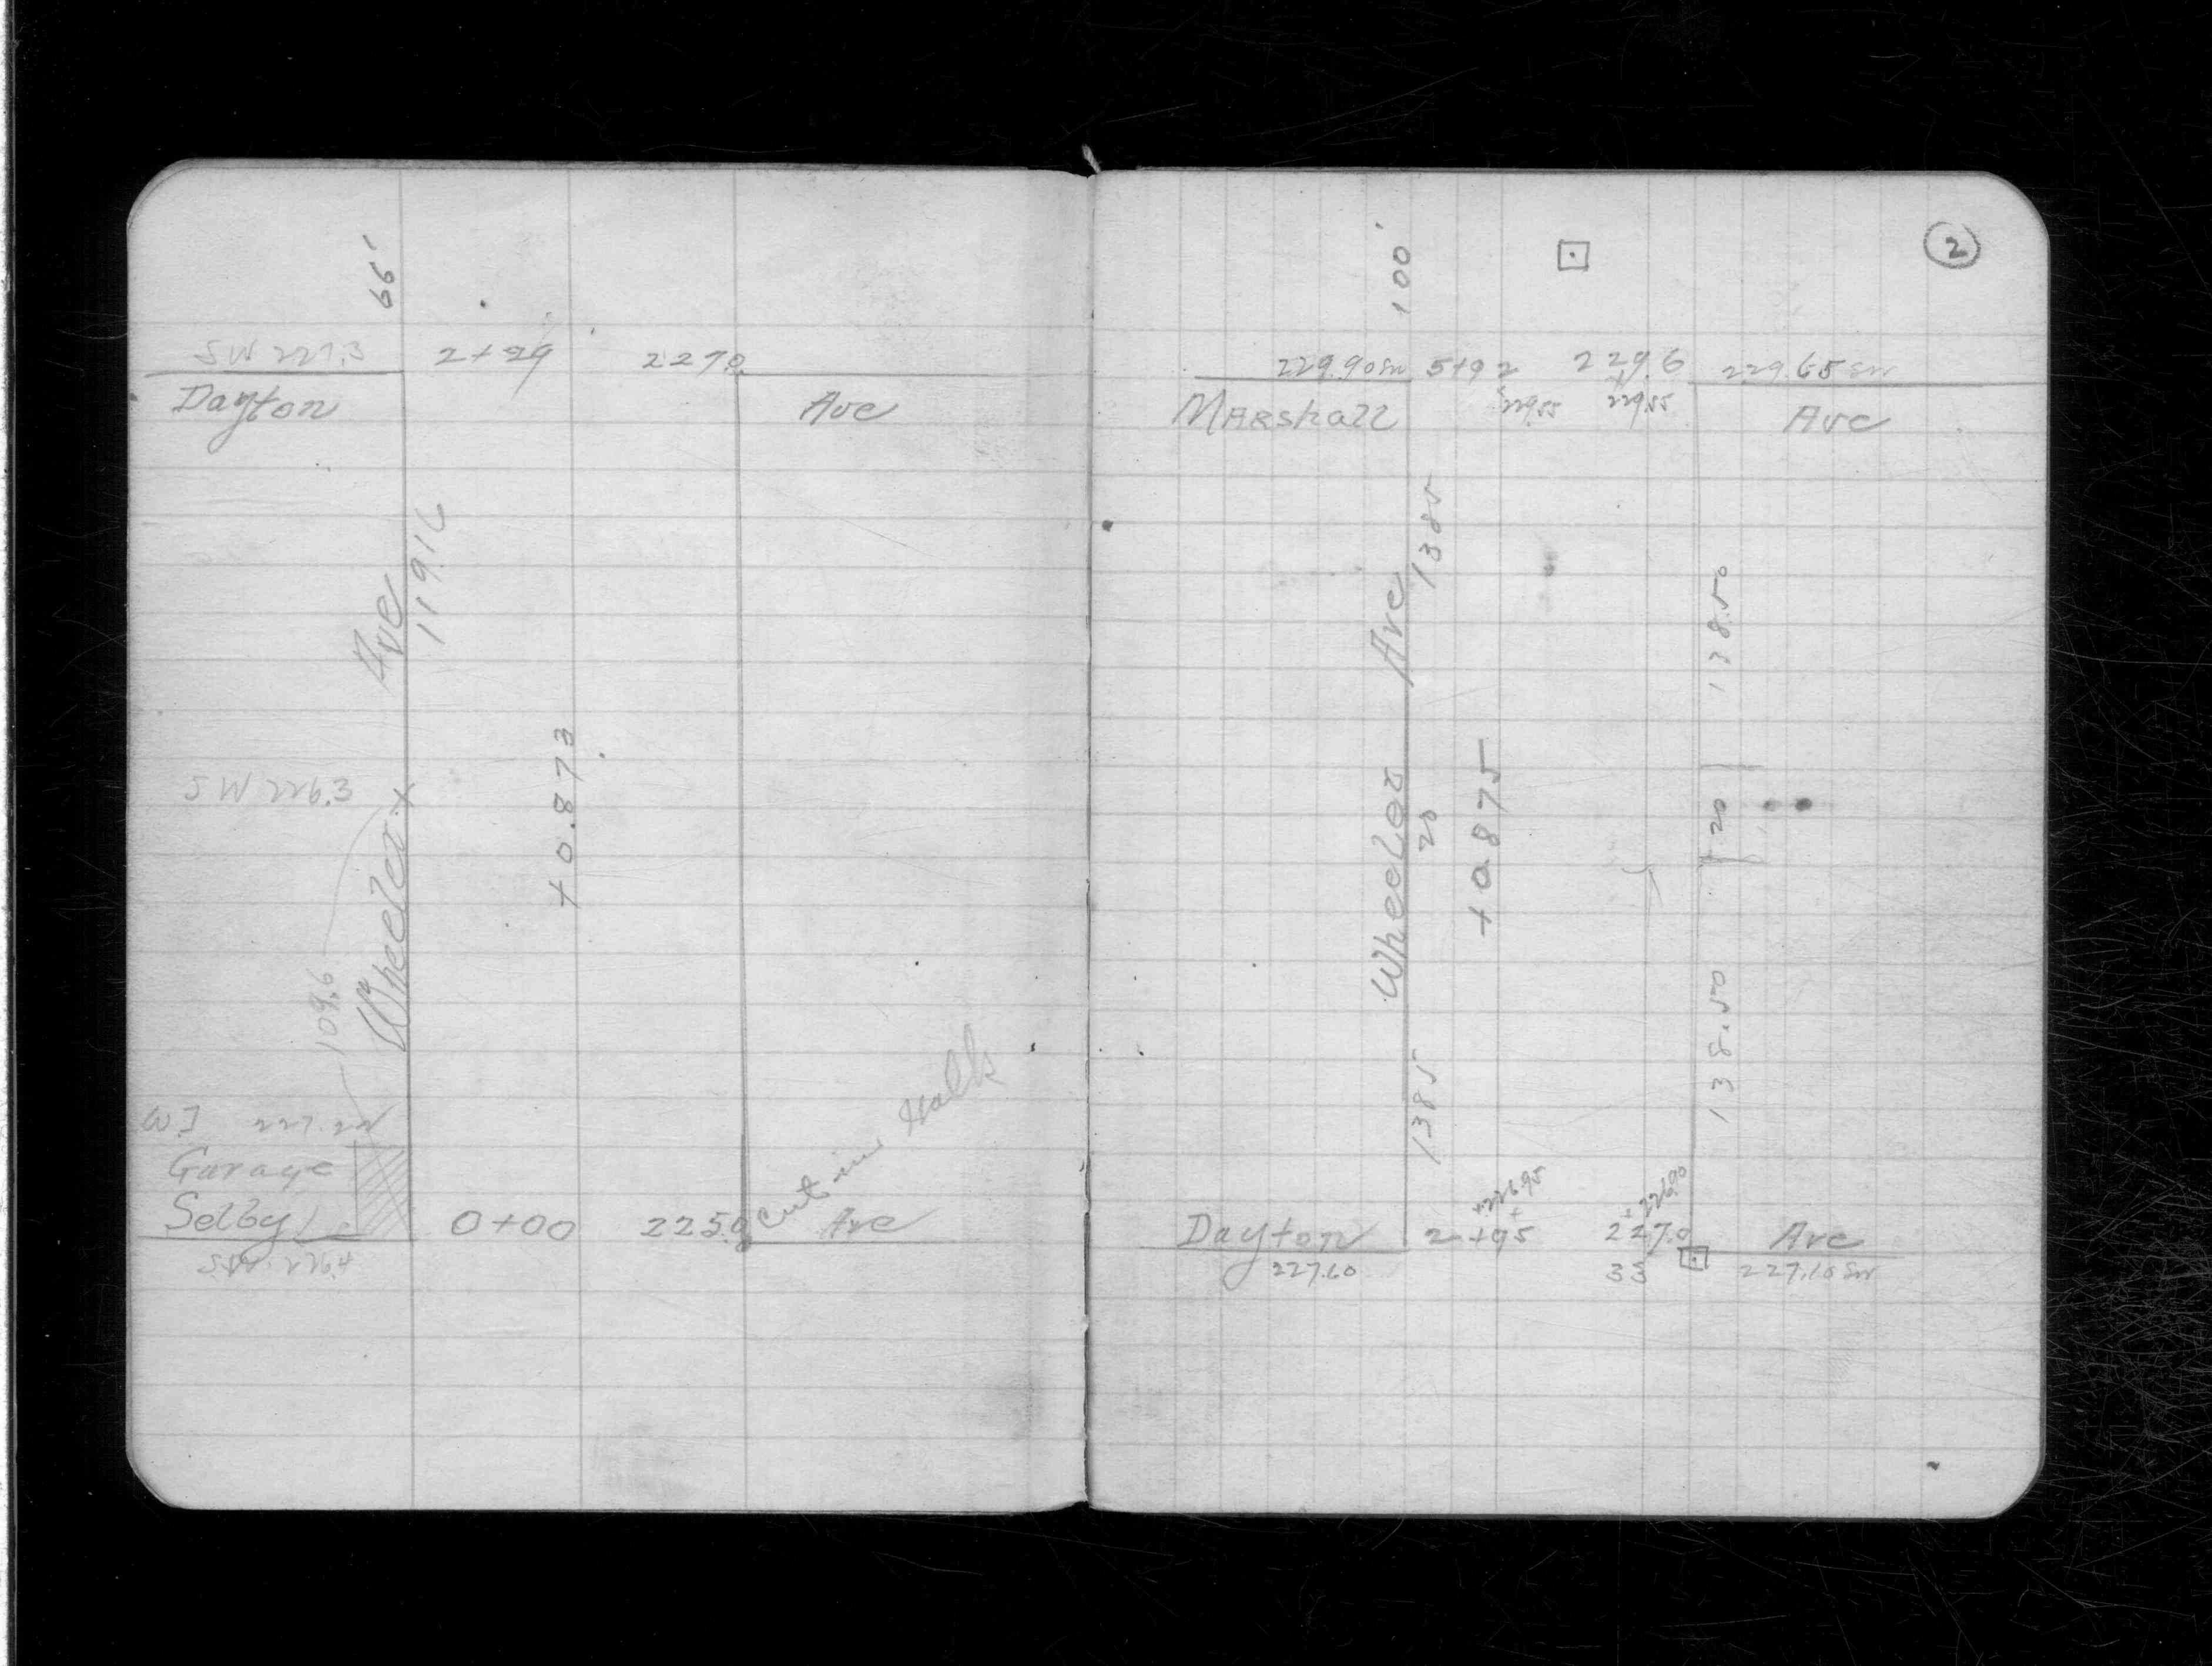 66'
SW 227.3 2+29 227.0
Dayton Ave
Wheeler Ave
119.16
SW 226.3
+0.873
109.6
227.22
Garage
Selby 0+00 225.0 Ave
Cut in Walk
SW. 226.4
2
100'
229.90 SW 5+92 229.6 229.65 SW
Marshall 229.55 229.55 Ave
Wheeler Ave
138.5
20
138.5
+0.875
138.50
20
138.50
+226.95 +226.90
Dayton 2+95 227.0 Ave
227.60 33 227.10 SW